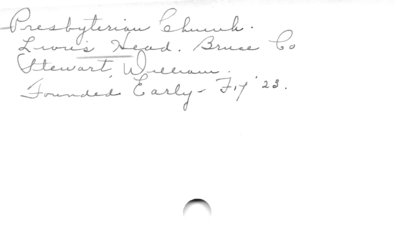 Presbyterian Church.
Lion's Head. Bruce Co
Stewart, William.
Founded Early - F, 17 '23.